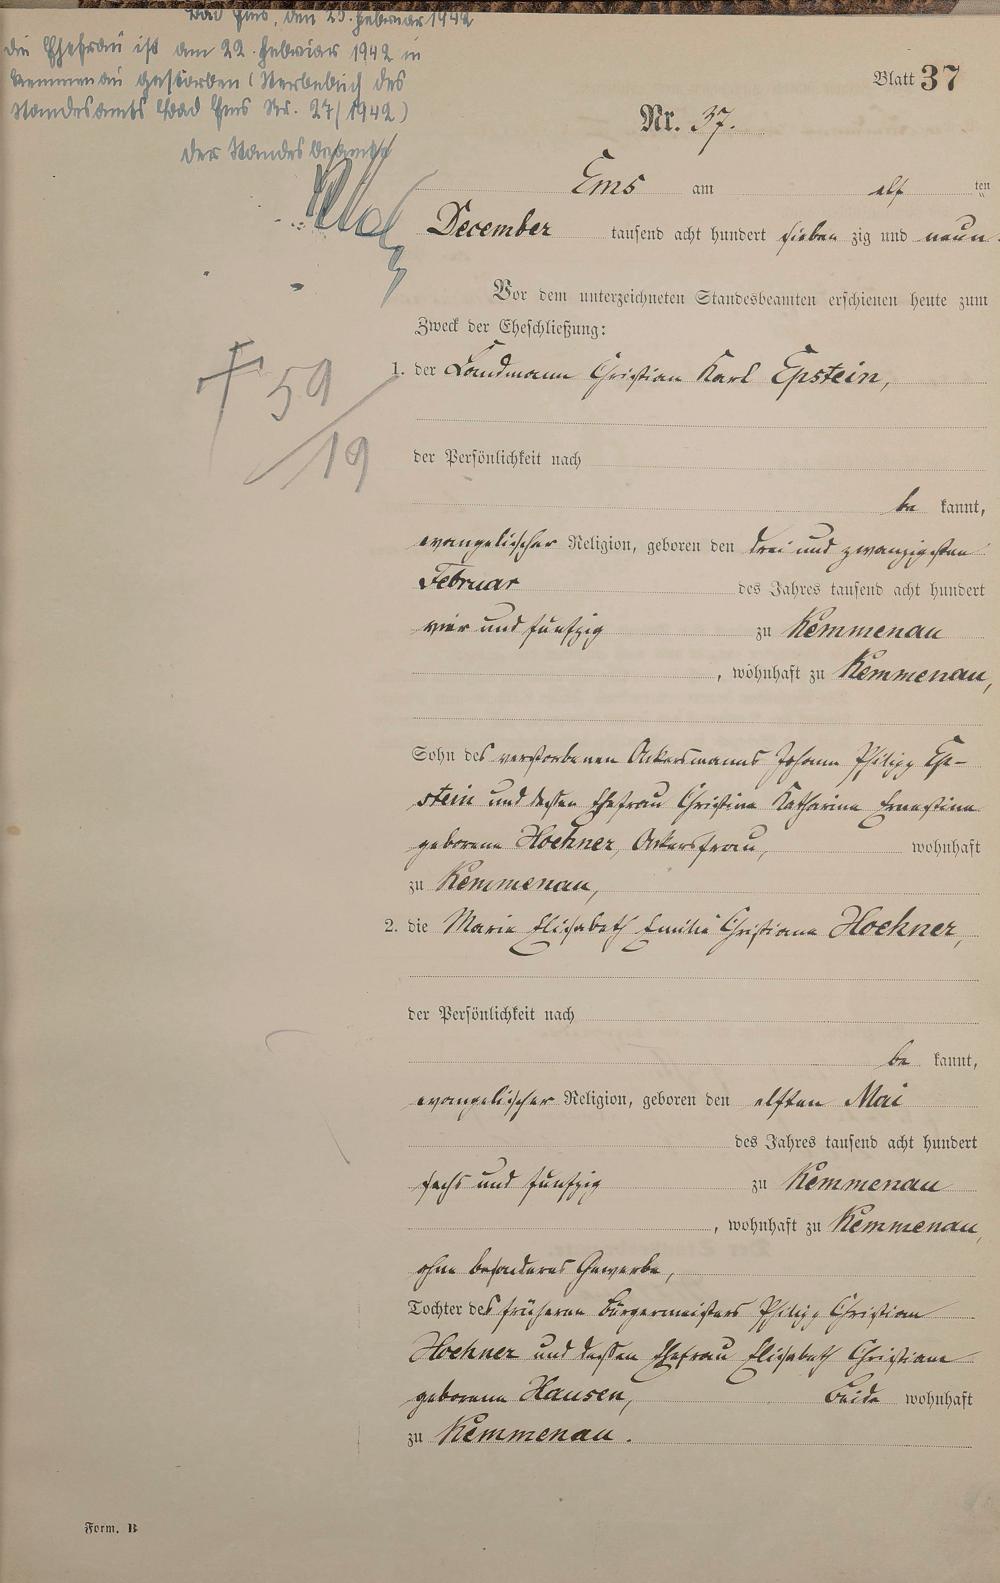 Bad Ems, den 25. Februar 1942
Die Ehefrau ist am 22. Februar 1942 in
Kemmenau gestorben (Sterbebuch des
Standesamts Bad Ems Nr. 27/1942)
Der Standesbeamte
Blatt 37
Nr. 37.
Ems am elf ten
December tausend acht hundert sieben zig und neun.
Vor dem unterzeichneten Standesbeamten erschienen heute zum
Zweck der Eheschließung:
1. der Landmann Christian Karl Epstein,
† 59/19
der Persönlichkeit nach
be kannt,
evangelischer Religion, geboren den drei und zwanzigsten
Februar des Jahres tausend acht hundert
vier und fünfzig zu Kemmenau
, wohnhaft zu Kemmenau,
Sohn des verstorbenen Ackersmanns Johann Philipp Ep-
stein und dessen Ehefrau Christine Katharine Ernestine
geborene Hoehner, Ackersfrau, wohnhaft
zu Kemmenau,
2. die Marie Elisabeth Emilie Christiane Hoehner,
der Persönlichkeit nach
be kannt,
evangelischer Religion, geboren den elften Mai
des Jahres tausend acht hundert
sechs und fünfzig zu Kemmenau
, wohnhaft zu Kemmenau,
ohne besonderes Gewerbe,
Tochter des früheren Bürgermeisters Philipp Christian
Hoehner und dessen Ehefrau Elisabeth Christiane
geborene Hausen, Beide wohnhaft
zu Kemmenau.
Form. B